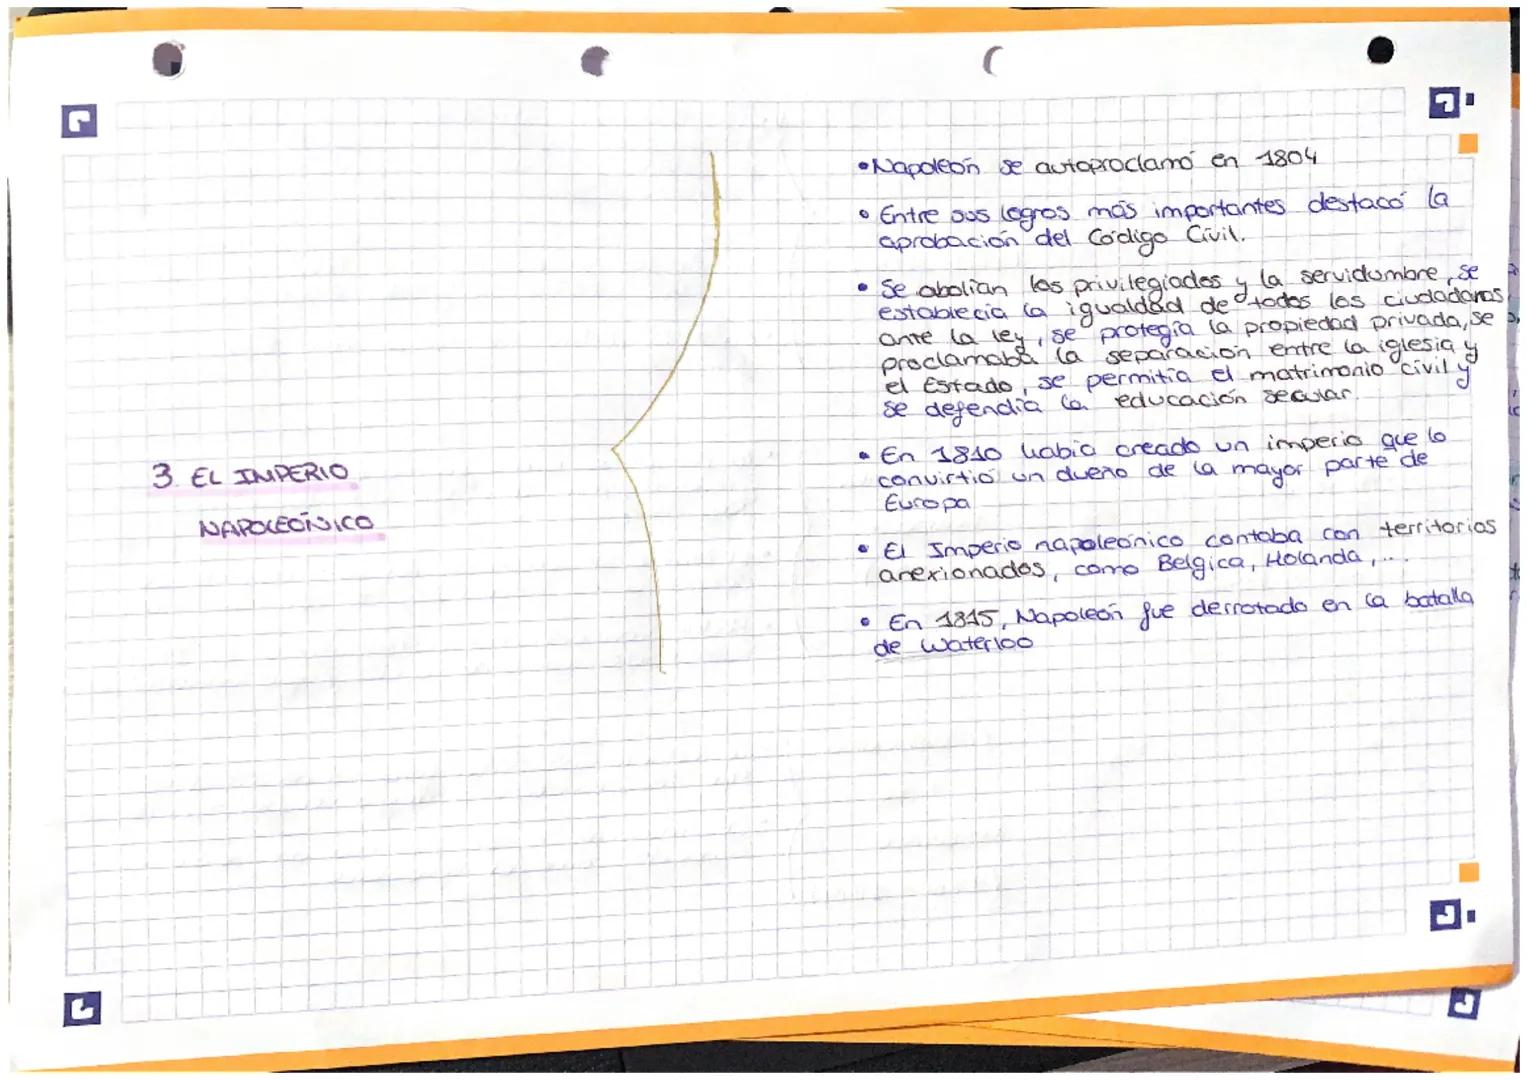 3. EL IMPERIO
NAPOLEÓNICO
• Napoleón se autoproclamó en 1804
• Entre sus logros más importantes destacó la
aprobación del Código Civil.
• Se abolían los privilegiados y la servidumbre, se
establecía la igualdad de todos los ciudadanos
ante la ley, se protegía la propiedad privada, se
proclamaba la separación entre la iglesia y
el Estado, se permitía el matrimonio civil y
se defendía la educación secular.
• En 1810 había creado un imperio que lo
convirtió un dueño de la mayor parte de
Europa
• El Imperio napoleónico contaba con territorios
anexionados, como Bélgica, Holanda,...
• En 1815, Napoleón fue derrotado en la batalla
de Waterloo